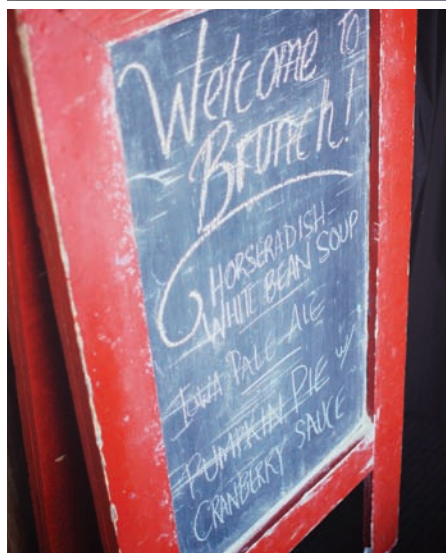 Welcome to
Brunch!
HORSERADISH-
WHITE BEAN SOUP
IOWA PALE ALE
PUMPKIN PIE w/
CRANBERRY SAUCE